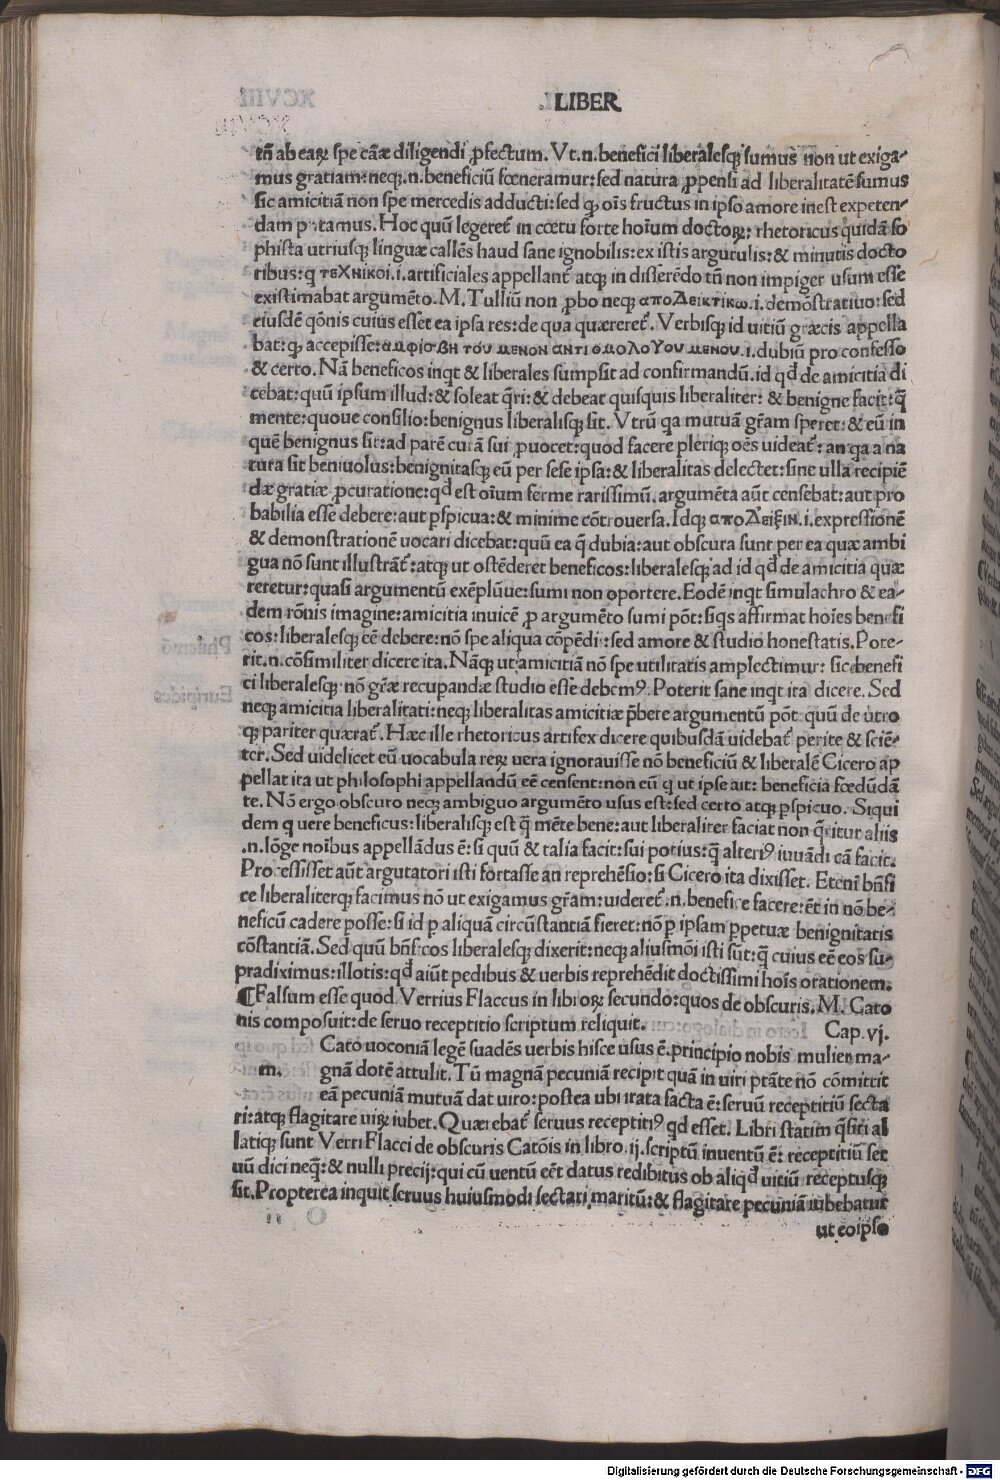 LIBER
tñ ab eaꝝ spe cãæ diligendi ꝓfectum. Vt.n.benefici liberalesqꝫ sumus non ut exiga-
mus gratiam:neqꝫ.n.beneficiũ fœneramur:sed natura ꝓpensi ad liberalitatẽ sumus
sic amicitiã non spe mercedis adducti:sed qꝫ oĩs fructus in ipso amore inest expeten-
dam putamus. Hoc quũ legereẽt in cœtu forte hoĩum doctoꝝ: rhetoricus quidã so
phista utriusqꝫ linguæ callẽs haud sane ignobilis:ex istis argutulis:& minutis docto
ribus:q τεχνικοι.i.artificiales appellant̃ atqꝫ in disserẽdo tñ non impiger usum esse
existimabat argumẽto.M.Tulliũ non ꝓbo neqꝫ αποδεικτικω.i.demõstratiuo:sed
eiusdẽ qõnis cuius esset ea ipsa res:de qua quæreret̃. Verbisqꝫ id uitiũ græcis appella
bat:qꝫ accepisse:αμφισβητουμενον αντι ομολογουμενου.i.dubiũ pro confesso
& certo. Nã beneficos inqt & liberales sumpsit ad confirmandũ.id qd̃ de amicitia di
cebat:quũ ipsum illud:& soleat q̃ri:& debeat quisquis liberaliter: & benigne facit:q̃
mente:quoue consilio:benignus liberalisqꝫ sit. Vtrũ qa mutuã gr̃am speret:& eũ in
quẽ benignus sit:ad parẽ curã sui ꝓuocet:quod facere pleriqꝫ oẽs uideat̃: an qa a na
tura sit beniuolus:benignitasqꝫ eũ per sese ipsa:& liberalitas delectet:sine ulla recipiẽ
dæ gratiæ ꝓcuratione:qd̃ est oĩum ferme rarissimũ.argumẽta aũt censebat:aut pro
babilia esse debere:aut ꝑspicua:& minime cõtrouersa.Idqꝫ αποδειξιν.i.expressionẽ
& demonstrationẽ uocari dicebat:quũ ea q̃ dubia:aut obscura sunt per ea quæ ambi
gua nõ sunt illustrãt̃:atqꝫ ut ostẽderet beneficos:liberalesqꝫ ad id qd̃ de amicitia quæ
reretur:quasi argumentũ exẽplũue:sumi non oportere.Eodẽ inqt simulachro & ea-
dem rõnis imagine:amicitia inuicẽ ꝓ argumẽto sumi põt:siqs affirmat hoĩes benefi
cos:liberalesqꝫ eẽ debere:nõ spe aliqua cõpẽdi:sed amore & studio honestatis.Pote-
rit.n.cõsimiliter dicere ita. Nãqꝫ ut amicitiã nõ spe utilitatis amplectimur: sic benefi
ci liberalesqꝫ nõ gr̃æ recupandæ studio esse debemꝰ.Poterit sane inqt ita dicere. Sed
neqꝫ amicitia liberalitati:neqꝫ liberalitas amicitiæ p̃bere argumentũ põt:quũ de utro
qꝫ pariter quærat̃.Hæc ille rhetoricus artifex dicere quibusdã uidebat̃ perite & sciẽ-
ter. Sed uidelicet eũ uocabula reꝝ uera ignorauisse nõ beneficiũ & liberalẽ Cicero ap
pellat ita ut philosophi appellandũ eẽ censent:non eũ q ut ipse ait: beneficia fœdũdã
te. Nõ ergo obscuro neqꝫ ambiguo argumẽto usus est:sed certo atqꝫ ꝑspicuo. Siqui
dem q uere beneficus:liberalisqꝫ est q̃ mẽte bene:aut liberaliter faciat non q̃ritur aliis
.n.lõge noĩbus appellãdus ẽ:si quũ & talia facit:sui potius:q̃ alteriꝰ iuuãdi cã facit.
Processisset aũt argutatori isti fortasse an reprehẽsio:si Cicero ita dixisset. Etenĩ bñfi
ce liberaliterqꝫ facimus nõ ut exigamus gr̃am:uideret̃.n.benefice facere:ẽt in nõ be-
neficũ cadere posse:si id p aliquã circũstantiã fieret:nõ p ipsam ꝑpetuæ benignitatis
cõstantiã. Sed quũ bñficos liberalesqꝫ dixerit:neqꝫ aliusmõi isti sũt:q̃ cuius eẽ eos su-
pradiximus:illotis:qd̃ aiũt pedibus & uerbis reprehẽdit doctissimi hoĩs orationem.
¶Falsum esse quod Verrius Flaccus in libroꝝ secundo:quos de obscuris.M.Cato
nis composuit:de seruo receptitio scriptum reliquit. Cap.vj.
Cato uoconiã legẽ suadẽs uerbis hisce usus ẽ.principio nobis mulier ma-
m. gnã dotẽ attulit. Tũ magnã pecuniã recipit quã in uiri ptãte nõ cõmittit
eã pecuniã mutuã dat uiro:postea ubi irata facta ẽ:seruũ receptitiũ secta
ri:atqꝫ flagitare uiꝝ iubet.Quærebat̃ seruus receptitiꝰ qd esset. Libri statim q̃siti al
latiqꝫ sunt Verri Flacci de obscuris Catõis in libro.ij.scriptũ inuentũ ẽ: receptitiũ ser
uũ dici neq̃:& nulli precij:qui cũ uentũ eẽt datus redibitus ob aliqd̃ uitiũ receptusqꝫ
sit.Propterea inquit seruus huiusmodi sectari maritũ:& flagitare pecuniã iubebatur
ut eoipso
Digitalisierung gefördert durch die Deutsche Forschungsgemeinschaft - DFG